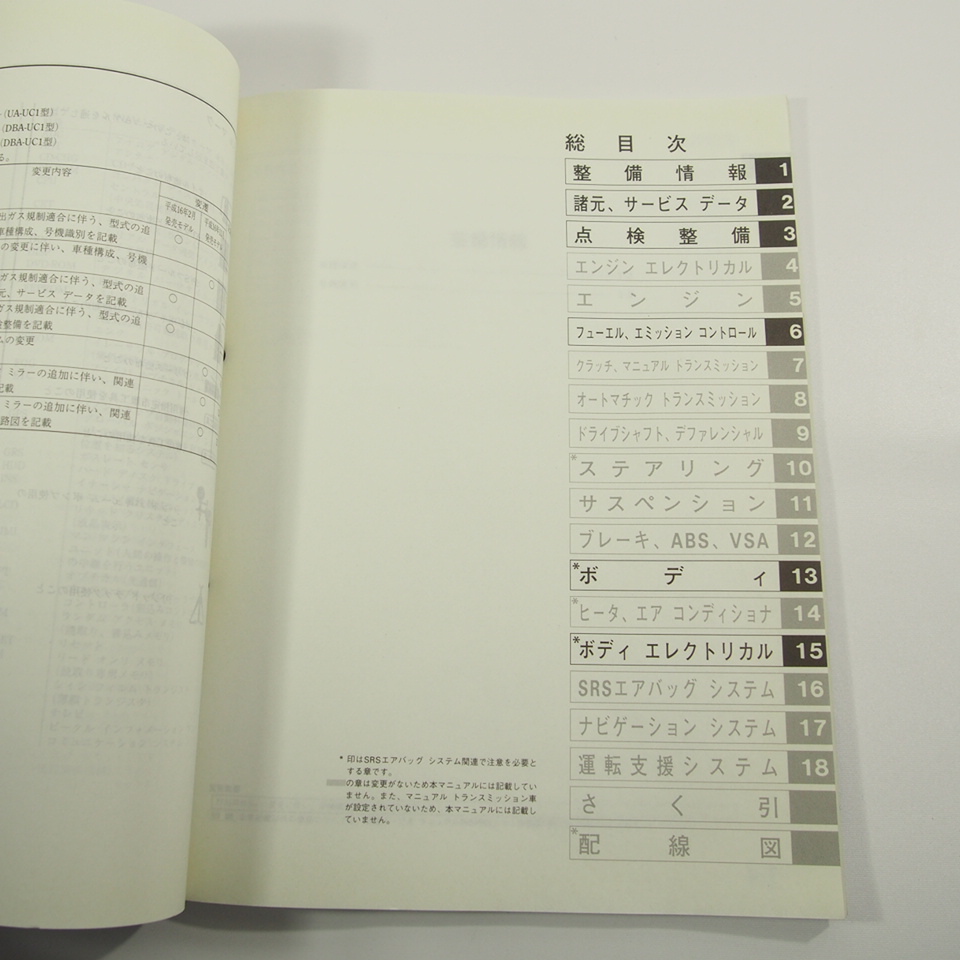 (UA-UC1型)
(DBA-UC1型)
(DBA-UC1型)
る。
変更内容
変遷
平成16年2月
発売モデル
平成16年
出ガス規制適合に伴う、型式の追
車種構成、号機識別を記載
○
の変更に伴い、車種構成、号機
○
ガス規制適合に伴う、型式の追
元、サービス データを記載
○
ガス規制適合に伴う、型式の追
検整備を記載
○
ムの変更
○
ミラーの追加に伴い、関連
記載
○
ミラーの追加に伴い、関連
路図を記載
○
総目次
整備情報 1
諸元、サービス データ 2
点検整備 3
エンジン エレクトリカル 4
エンジン 5
フューエル、エミッション コントロール 6
クラッチ、マニュアル トランスミッション 7
オートマチック トランスミッション 8
ドライブシャフト、デファレンシャル 9
*ステアリング 10
サスペンション 11
ブレーキ、ABS、VSA 12
*ボディ 13
*ヒータ、エア コンディショナ 14
*ボディ エレクトリカル 15
SRSエアバッグ システム 16
ナビゲーション システム 17
運転支援システム 18
さく引
*配線図
* 印はSRSエアバッグ システム関連で注意を必要と
する章です。
の章は変更がないため本マニュアルには記載してい
ません。また、マニュアル トランスミッション車
が設定されていないため、本マニュアルには記載し
ていません。